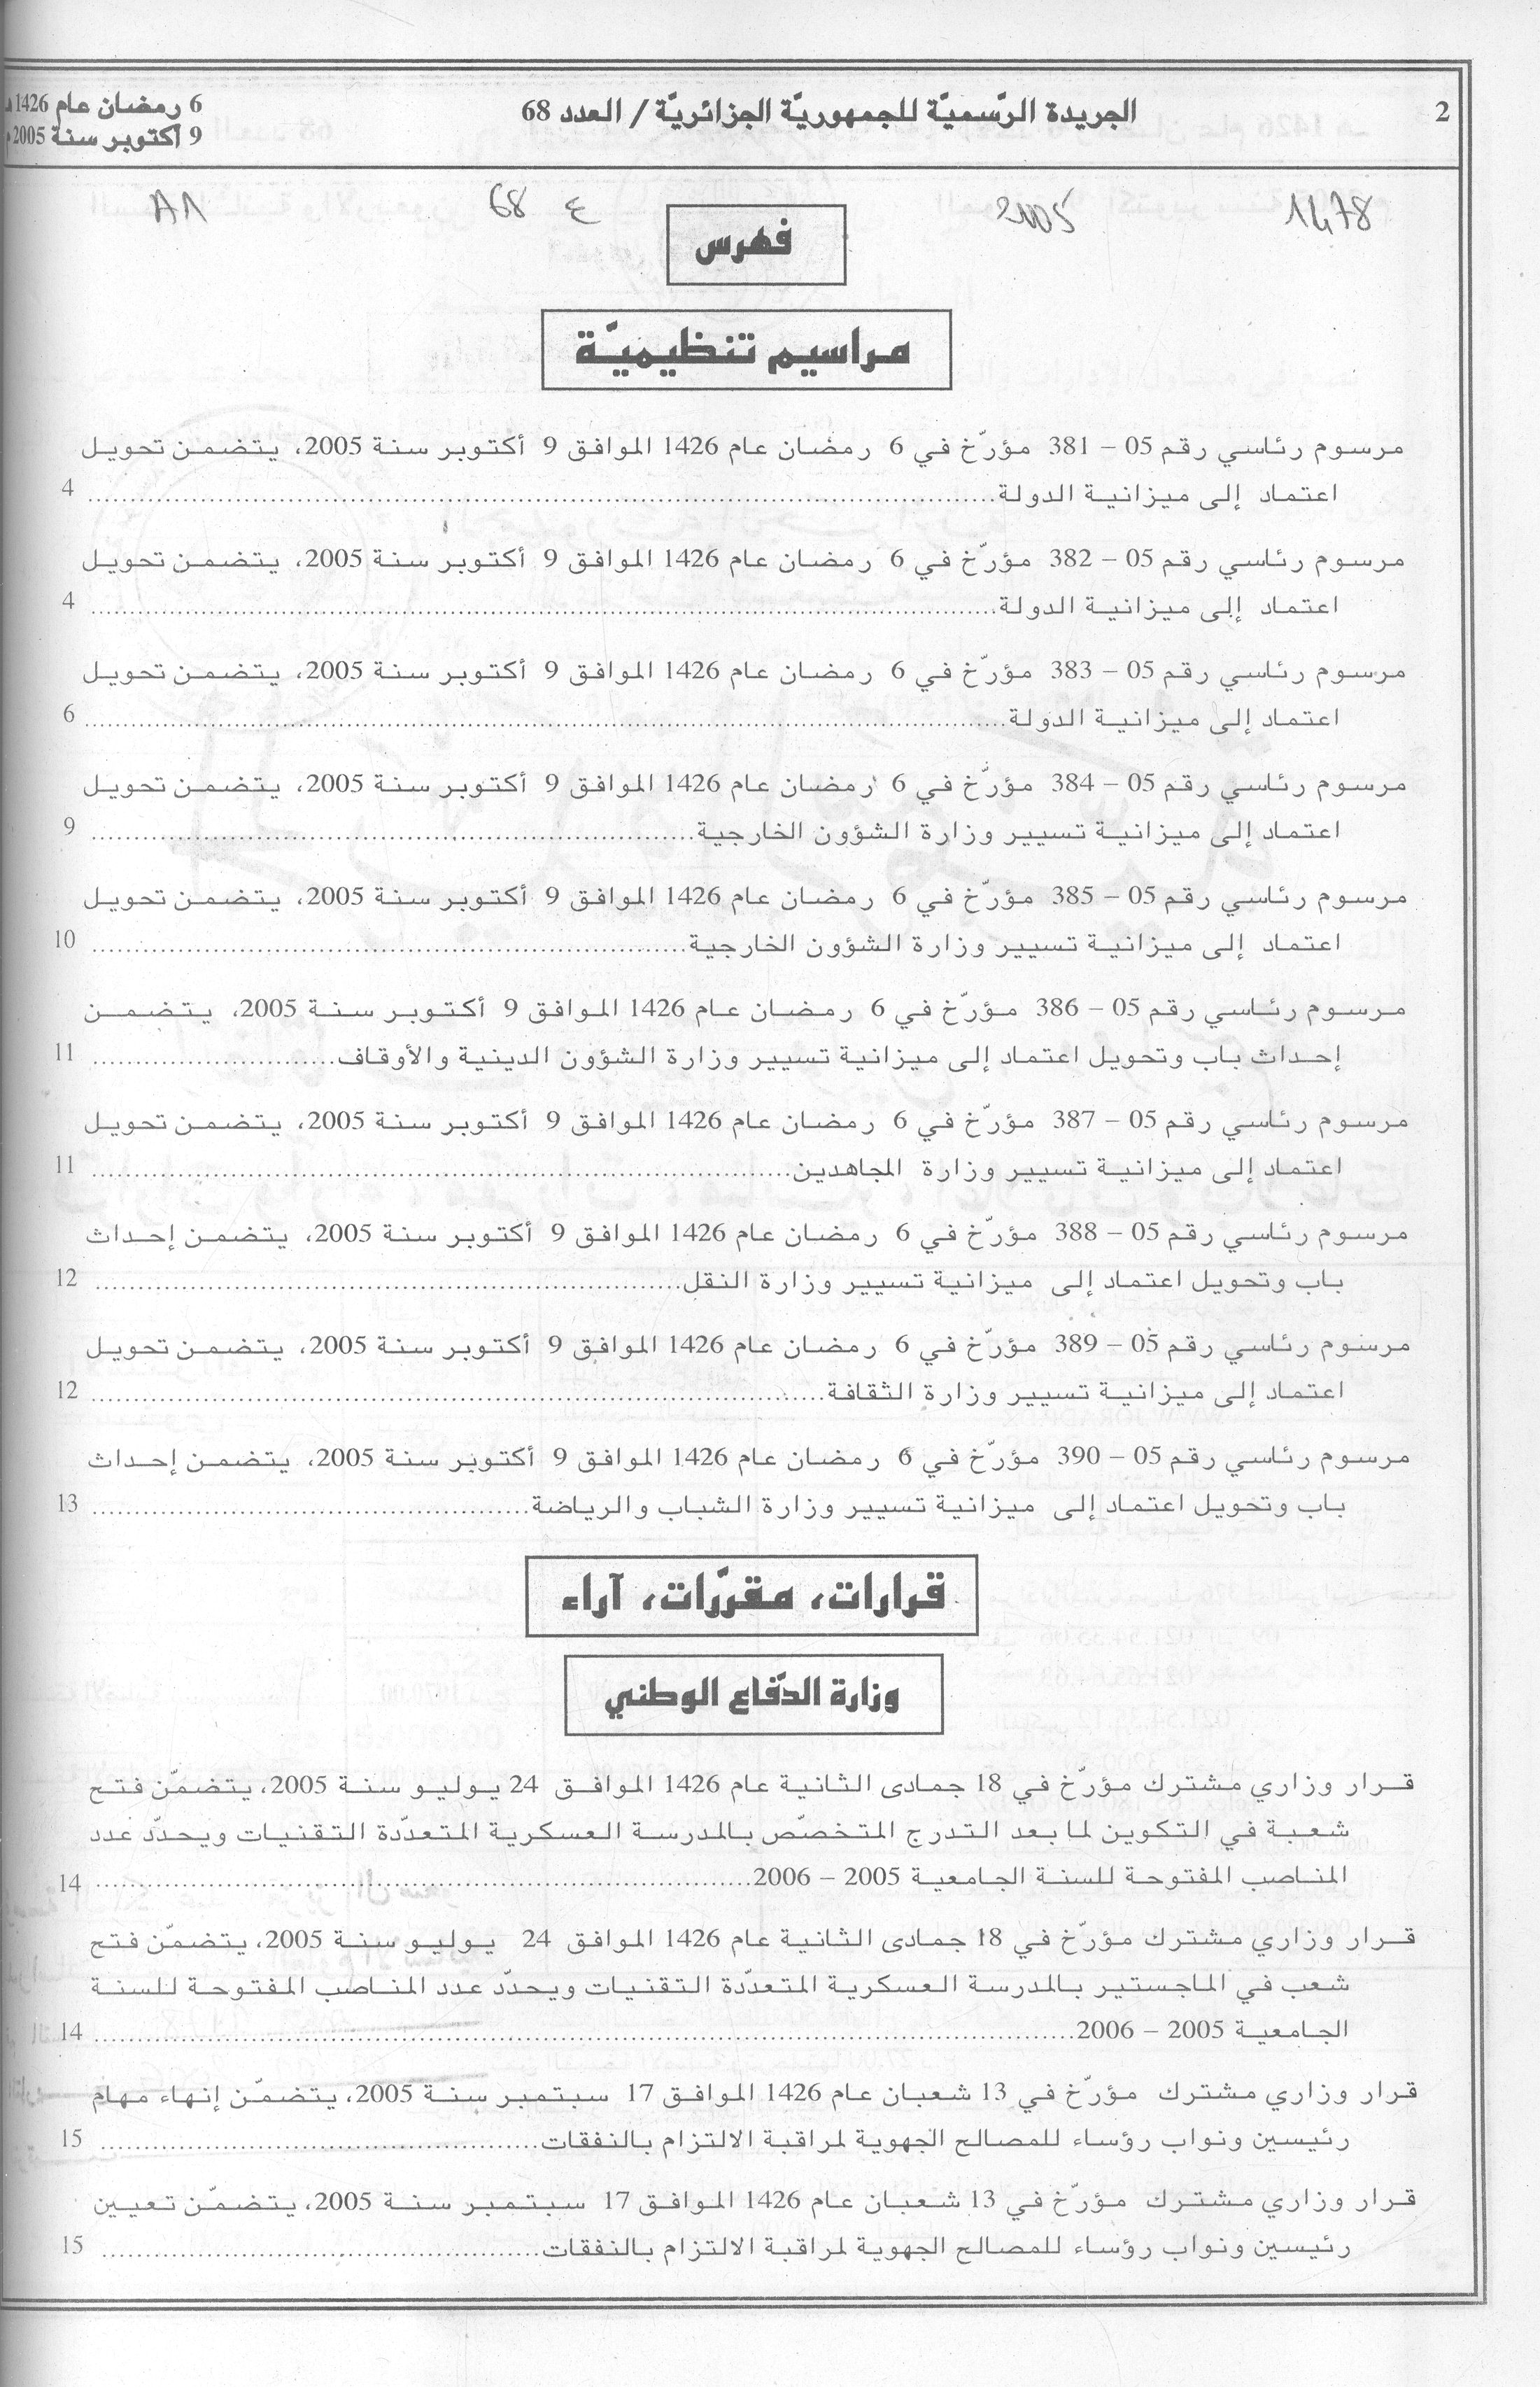 2
الجريدة الرّسميّة للجمهوريّة الجزائريّة / العدد 68
6 رمضان عام 1426
9 أكتوبر سنة 2005
1478
2005
68 ع
A1
فهرس
مراسيم تنظيميّة
مرسوم رئاسي رقم 05 – 381 مؤرّخ في 6 رمضان عام 1426 الموافق 9 أكتوبر سنة 2005، يتضمن تحويل
اعتماد إلى ميزانية الدولة........................ 4
مرسوم رئاسي رقم 05 – 382 مؤرّخ في 6 رمضان عام 1426 الموافق 9 أكتوبر سنة 2005، يتضمن تحويل
اعتماد إلى ميزانية الدولة........................ 4
مرسوم رئاسي رقم 05 – 383 مؤرّخ في 6 رمضان عام 1426 الموافق 9 أكتوبر سنة 2005، يتضمن تحويل
اعتماد إلى ميزانية الدولة........................ 6
مرسوم رئاسي رقم 05 – 384 مؤرّخ في 6 رمضان عام 1426 الموافق 9 أكتوبر سنة 2005، يتضمن تحويل
اعتماد إلى ميزانية تسيير وزارة الشؤون الخارجية........................ 9
مرسوم رئاسي رقم 05 – 385 مؤرّخ في 6 رمضان عام 1426 الموافق 9 أكتوبر سنة 2005، يتضمن تحويل
اعتماد إلى ميزانية تسيير وزارة الشؤون الخارجية........................ 10
مرسوم رئاسي رقم 05 – 386 مؤرّخ في 6 رمضان عام 1426 الموافق 9 أكتوبر سنة 2005، يتضمن
إحداث باب وتحويل اعتماد إلى ميزانية تسيير وزارة الشؤون الدينية والأوقاف........................ 11
مرسوم رئاسي رقم 05 – 387 مؤرّخ في 6 رمضان عام 1426 الموافق 9 أكتوبر سنة 2005، يتضمن تحويل
اعتماد إلى ميزانية تسيير وزارة المجاهدين........................ 11
مرسوم رئاسي رقم 05 – 388 مؤرّخ في 6 رمضان عام 1426 الموافق 9 أكتوبر سنة 2005، يتضمن إحداث
باب وتحويل اعتماد إلى ميزانية تسيير وزارة النقل........................ 12
مرسوم رئاسي رقم 05 – 389 مؤرّخ في 6 رمضان عام 1426 الموافق 9 أكتوبر سنة 2005، يتضمن تحويل
اعتماد إلى ميزانية تسيير وزارة الثقافة........................ 12
مرسوم رئاسي رقم 05 – 390 مؤرّخ في 6 رمضان عام 1426 الموافق 9 أكتوبر سنة 2005، يتضمن إحداث
باب وتحويل اعتماد إلى ميزانية تسيير وزارة الشباب والرياضة........................ 13
قرارات، مقرّرات، آراء
وزارة الدّفاع الوطني
قرار وزاري مشترك مؤرّخ في 18 جمادى الثانية عام 1426 الموافق 24 يوليو سنة 2005، يتضمّن فتح
شعبة في التكوين لما بعد التدرج المتخصّص بالمدرسة العسكرية المتعدّدة التقنيات ويحدّد عدد
المناصب المفتوحة للسنة الجامعية 2005 – 2006........................ 14
قرار وزاري مشترك مؤرّخ في 18 جمادى الثانية عام 1426 الموافق 24 يوليو سنة 2005، يتضمّن فتح
شعب في الماجستير بالمدرسة العسكرية المتعدّدة التقنيات ويحدّد عدد المناصب المفتوحة للسنة
الجامعية 2005 – 2006........................ 14
قرار وزاري مشترك مؤرّخ في 13 شعبان عام 1426 الموافق 17 سبتمبر سنة 2005، يتضمّن إنهاء مهام
رئيسين ونواب رؤساء للمصالح الجهوية لمراقبة الالتزام بالنفقات........................ 15
قرار وزاري مشترك مؤرّخ في 13 شعبان عام 1426 الموافق 17 سبتمبر سنة 2005، يتضمّن تعيين
رئيسين ونواب رؤساء للمصالح الجهوية لمراقبة الالتزام بالنفقات........................ 15